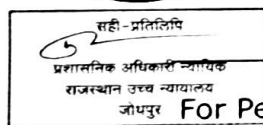 सही-प्रतिलिपि
प्रशासनिक अधिकारी न्यायिक
राजस्थान उच्च न्यायालय
जोधपुर
For Pe